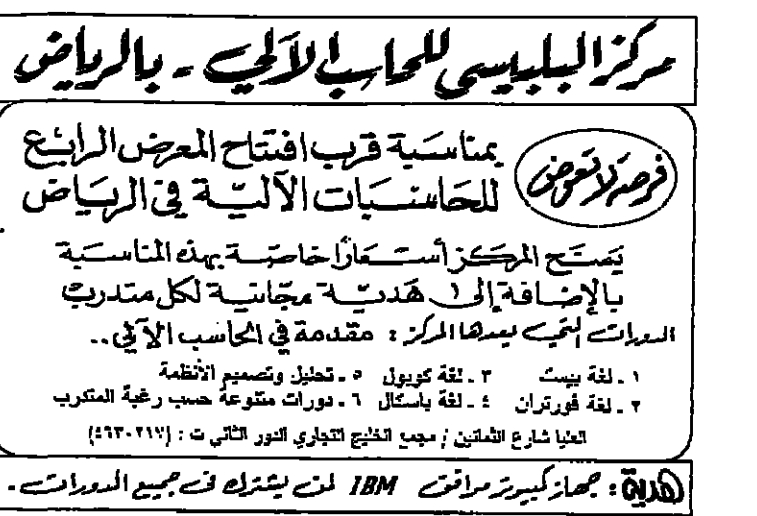 مركز البلبيسي للحاسب الآلي - بالرياض
فرصة لا تعوض
بمناسبة قرب افتتاح المعرض الرابع
للحاسبات الآلية في الرياض
يمنح المركز أسعارًا خاصة بهذه المناسبة
بالإضافة إلى هدية مجانية لكل متدرب
الدورات التي يعدها المركز : مقدمة في الحاسب الآلي ..
١ ـ لغة بيسك ٣ ـ لغة كوبول ٥ ـ تحليل وتصميم الأنظمة
٢ ـ لغة فورتران ٤ ـ لغة باسكال ٦ ـ دورات متنوعة حسب رغبة المتدرب
العليا شارع الثمانين / مجمع الخليج التجاري الدور الثاني ت : (٤٦٣٠٢١٧)
هدية : جهاز كمبيوتر موافق IBM لمن يشترك في جميع الدورات -